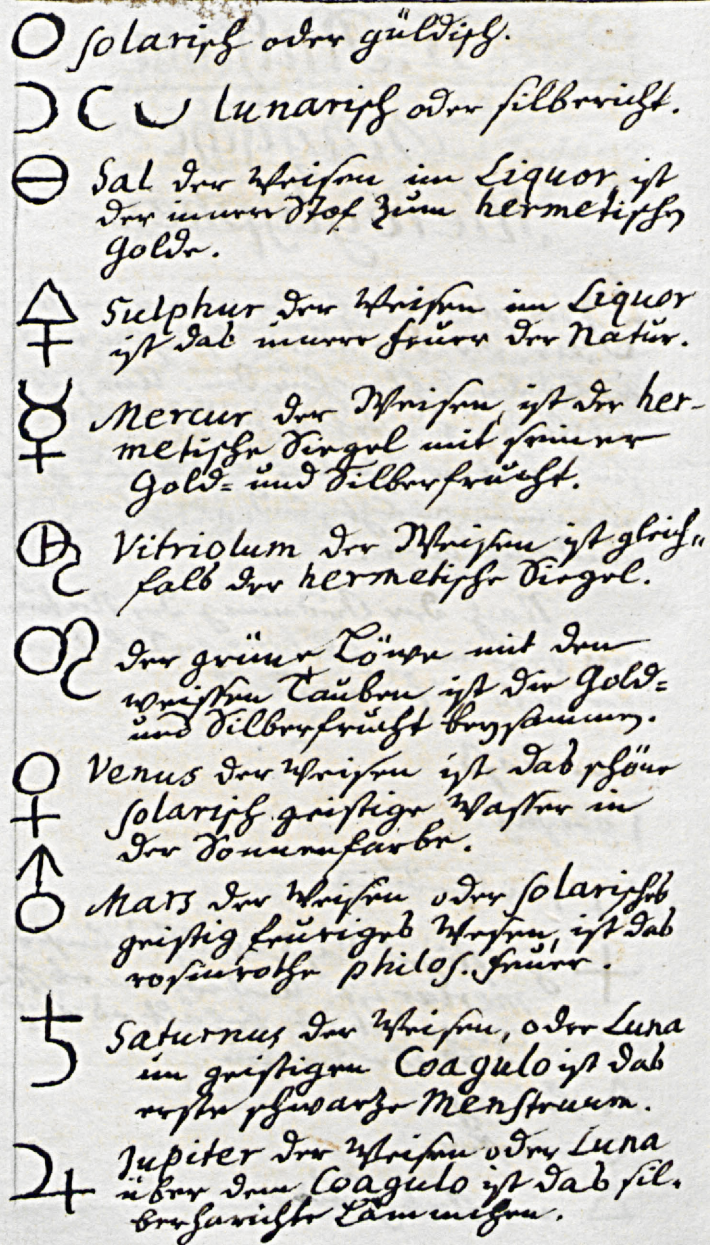 solarisch oder güldisch.
lunarisch oder silbericht.
Sal der Weisen im Liquor ist
der innere Stof zum hermetischen
Golde.
Sulphur der Weisen im Liquor
ist das innere Feuer der Natur.
Mercur der Weisen, ist der her-
metische Siegel mit seiner
Gold= und Silberfrucht.
Vitriolum der Weisen ist gleich=
falls der hermetische Siegel.
der grüne Löwe mit den
weissen Tauben ist die Gold=
und Silberfrucht beysammen.
Venus der Weisen ist das schöne
solarisch geistige Wasser in
der Sonnenfarbe.
Mars der Weisen oder solarisches
geistig feuriges Wesen, ist das
rosinrothe philos. Feuer.
Saturnus der Weisen, oder Luna
im geistigen Coagulo ist das
erste schwartze Menstruum.
Jupiter der Weisen oder Luna
über dem Coagulo ist das sil-
berharichte Lämmchen.